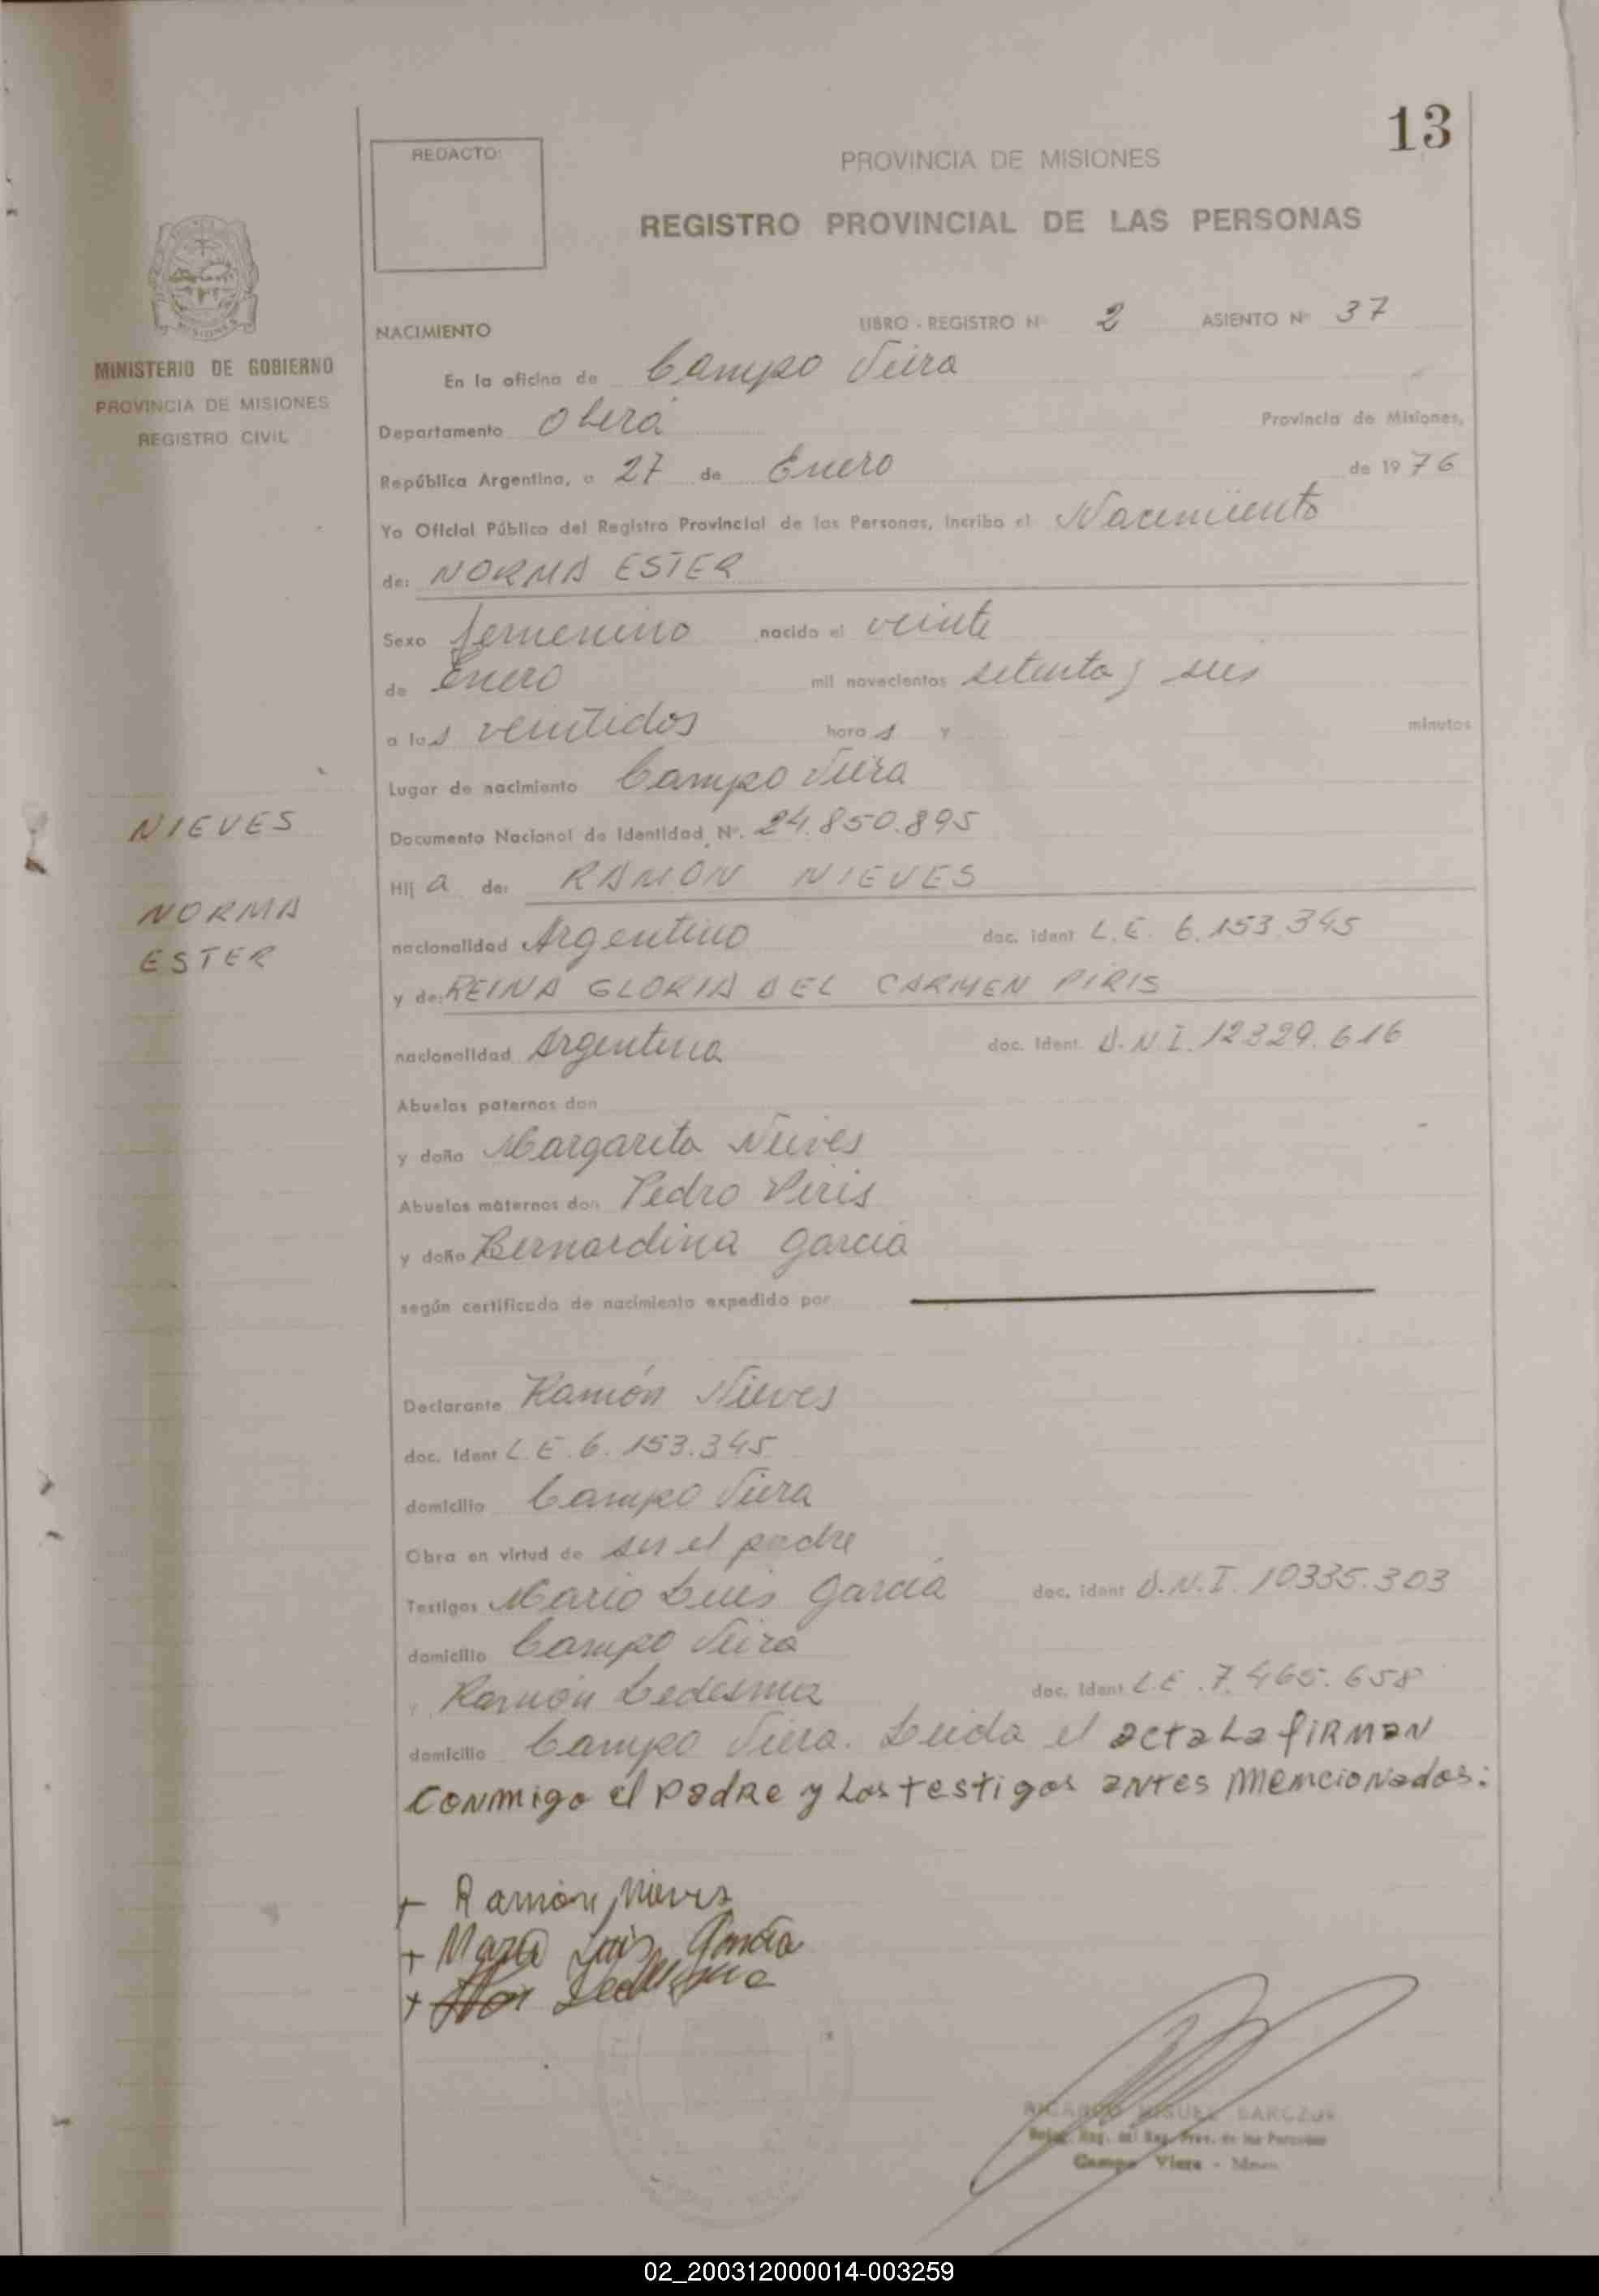 13
REDACTO:
PROVINCIA DE MISIONES
REGISTRO PROVINCIAL DE LAS PERSONAS
MISIONES
MINISTERIO DE GOBIERNO
PROVINCIA DE MISIONES
REGISTRO CIVIL
NACIMIENTO LIBRO - REGISTRO Nº 2 ASIENTO Nº 37
En la oficina de Campo Viera
Departamento Oberá Provincia de Misiones,
República Argentina, a 27 de Enero de 1976
Yo Oficial Público del Registro Provincial de las Personas, incribo el Nacimiento
de: NORMA ESTER
Sexo femenino nacido el veinte
de Enero mil novecientos setenta y seis
a las veintidos horas y minutos
Lugar de nacimiento Campo Viera
Documento Nacional de Identidad Nº. 24.850.895
Hija de: RAMÓN NIEVES
nacionalidad Argentino doc. ident L.E. 6.153.345
y de: REINA GLORIA DEL CARMEN PIRIS
nacionalidad Argentina doc. ident. D.N.I. 12329.616
Abuelos paternos don
y doña Margarita Nieves
Abuelos maternos don Pedro Piris
y doña Bernardina Garcia
según certificado de nacimiento expedido por
NIEVES
NORMA
ESTER
Declarante Ramón Nieves
doc. ident L.E. 6.153.345
domicilio Campo Viera
Obra en virtud de ser el padre
Testigos Mario Luis García doc. ident D.N.I. 10335.303
domicilio Campo Viera
y Ramón Ledesma doc. ident L.E. 7.465.658
domicilio Campo Viera. Leida el acta La fiRMan
conmigo el padRe y Los testigos antes mencionados:
+ Ramón Nieves
+ Mario Luis Garcia
+ Ledesma
RICARDO MIGUEL BARCZUK
Reg. Prov. de las Personas
Campo Viera - Mnes.
02_200312000014-003259